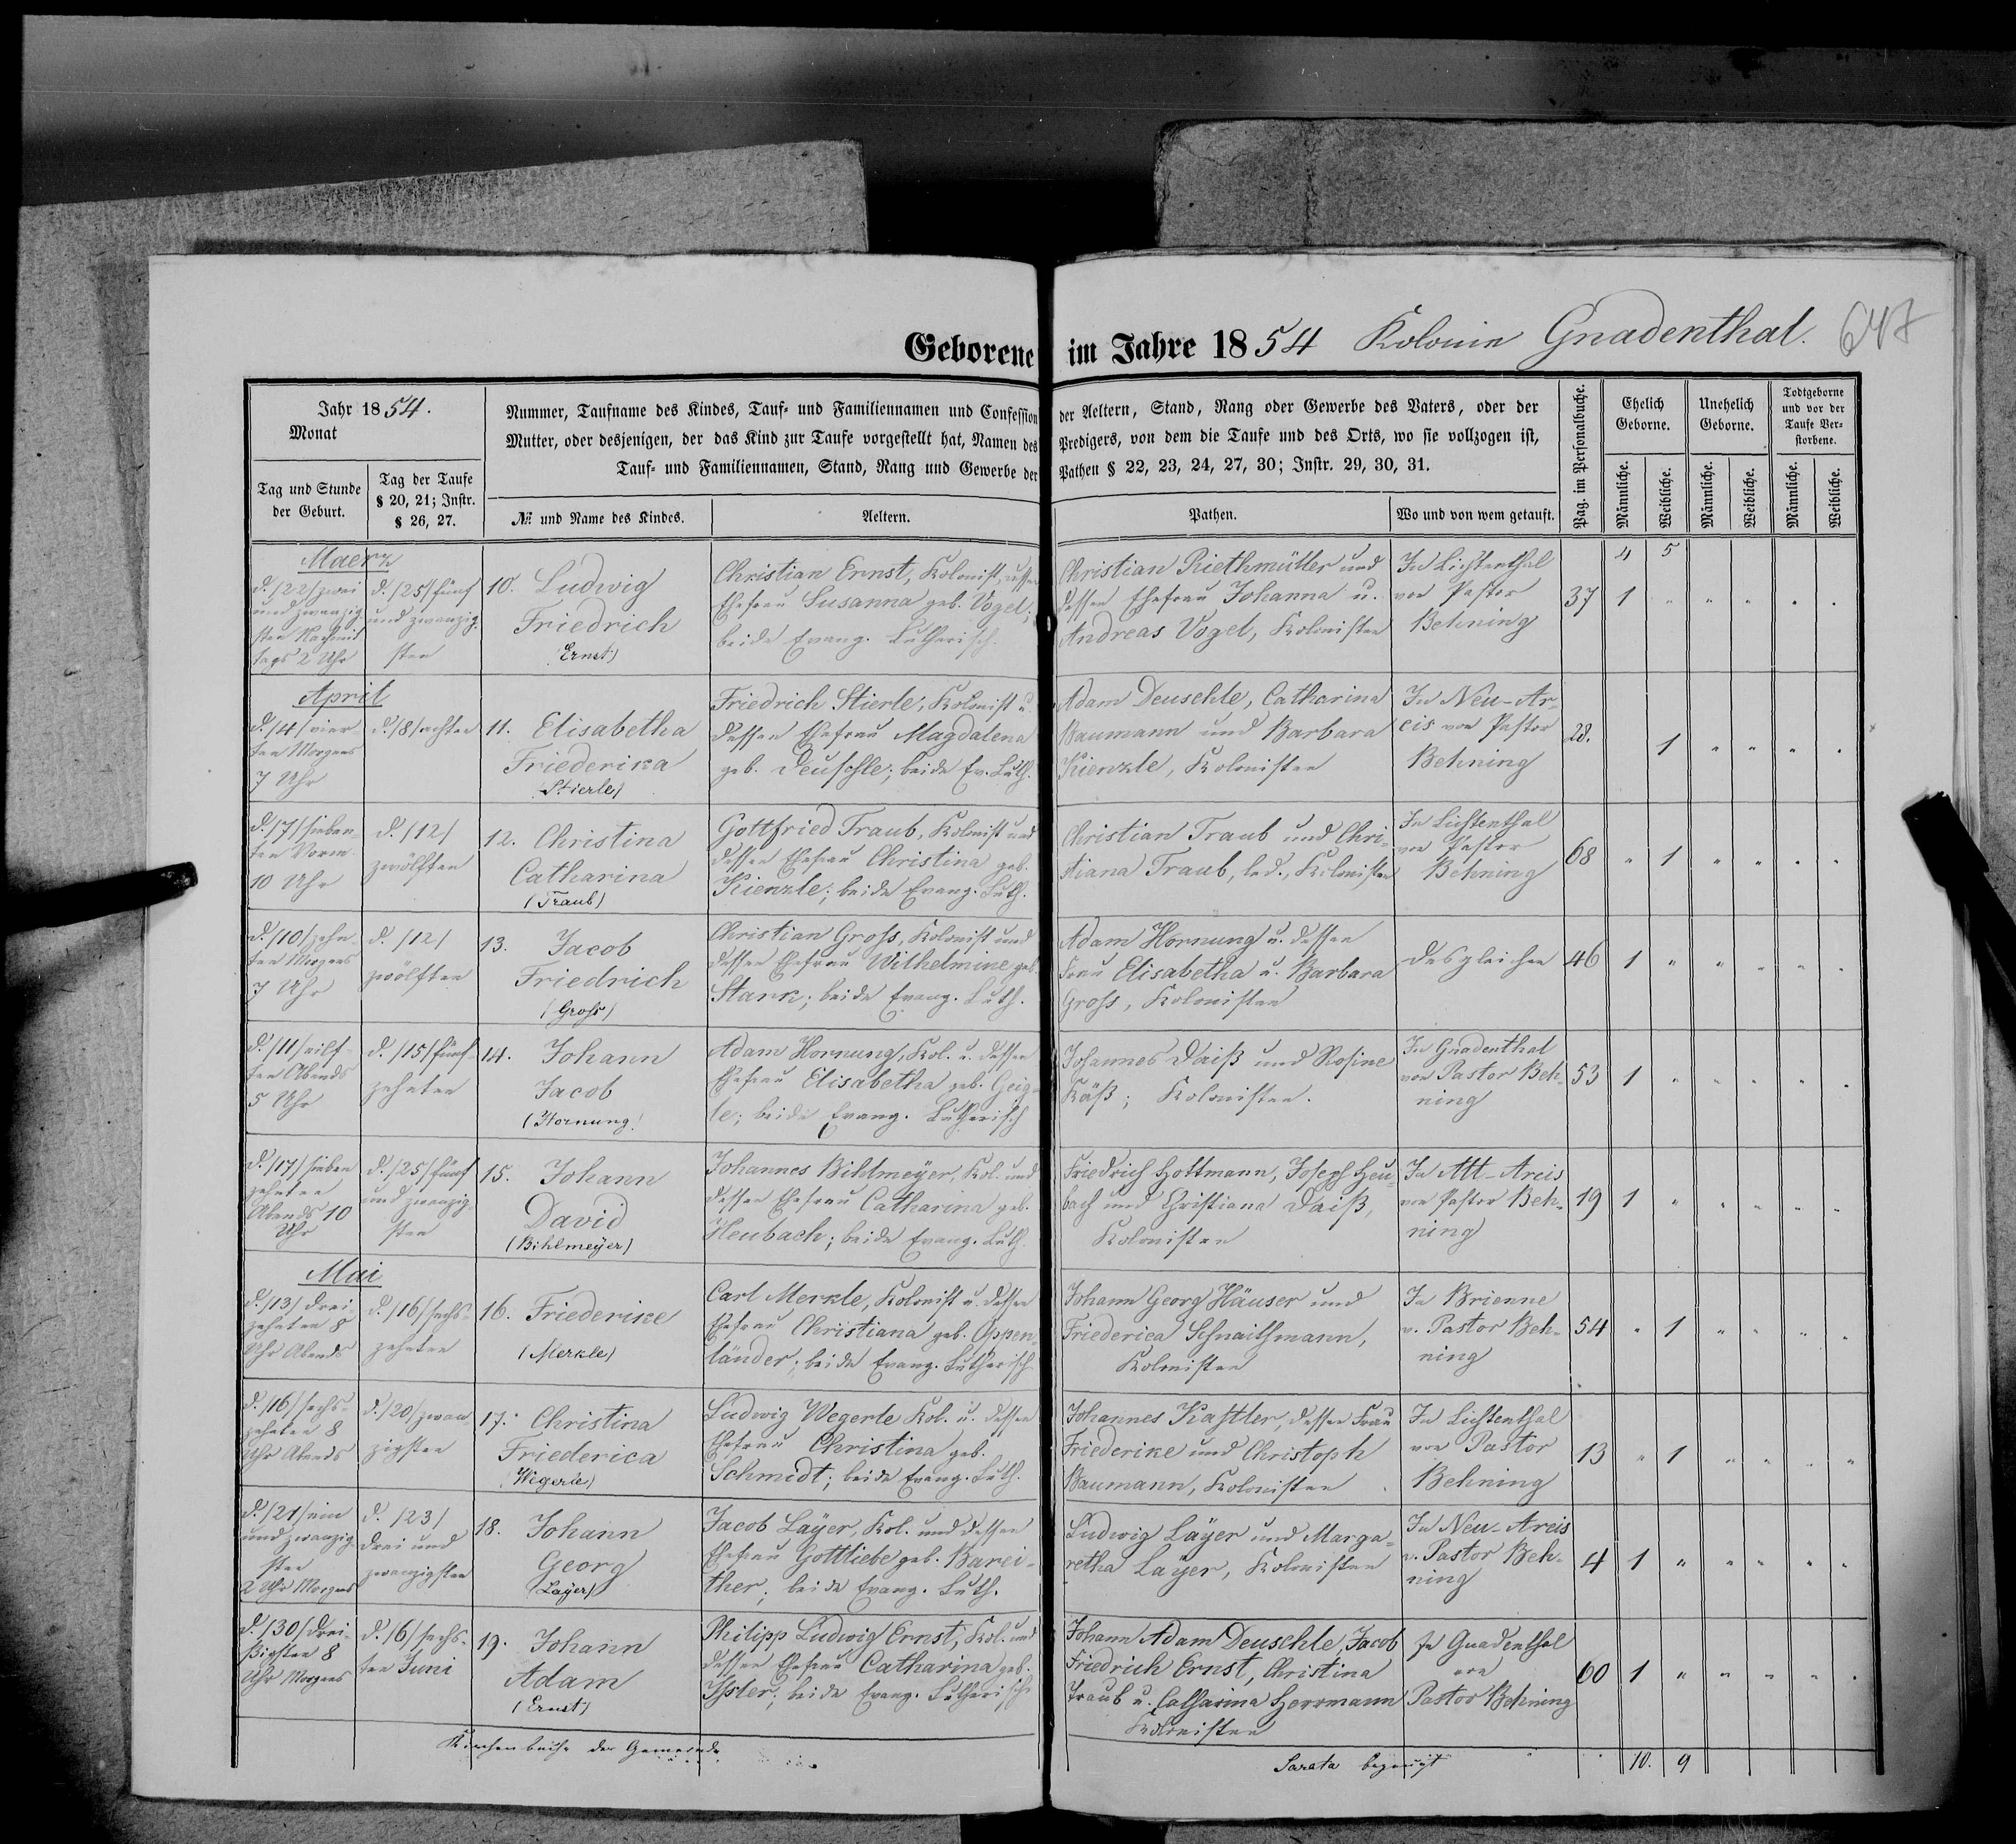 Geborene im Jahre 1854 Kolonie Gnadenthal. 647
Jahr 1854.
Monat
Tag und Stunde
der Geburt.
Tag der Taufe
§ 20, 21; Instr.
§ 26, 27.
Nummer, Taufname des Kindes, Tauf- und Familiennamen und Confession der Aeltern, Stand, Rang oder Gewerbe des Vaters, oder der
Mutter, oder desjenigen, der das Kind zur Taufe vorgestellt hat, Namen des Predigers, von dem die Taufe und des Orts, wo sie vollzogen ist,
Tauf- und Familiennamen, Stand, Rang und Gewerbe der Pathen § 22, 23, 24, 27, 30; Instr. 29, 30, 31.
№ und Name des Kindes.
Aeltern.
Pathen.
Wo und von wem getauft.
Pag. im Personalbuche.
Ehelich
Geborne.
Unehelich
Geborne.
Todtgeborne
und vor der
Taufe Ver-
storbene.
Männliche.
Weibliche.
Männliche.
Weibliche.
Männliche.
Weibliche.
4 5
Maerz
d. /22/ zwei
und zwanzig-
sten Nachmit
tags 2 Uhr
d. /25/ fünf
und zwanzig-
sten
10. Ludwig
Friedrich
(Ernst)
Christian Ernst, Kolonist, dessen
Ehefrau Susanna geb. Vogel;
beide Evang. Lutherisch.
Christian Riethmüller und
dessen Ehefrau Johanna u.
Andreas Vogel, Kolonisten
In Lichtenthal
von Pastor
Behning
37 1 " " " " "
April
d. /4/ vier-
ten Morgens
7 Uhr
d. /8/ achten
11. Elisabetha
Friederika
(Stierle)
Friedrich Stierle, Kolonist u.
dessen Ehefrau Magdalena
geb. Deuschle; beide Ev. Luth.
Adam Deuschle, Catharina
Baumann und Barbara
Kienzle, Kolonisten
In Neu-Ar-
cis von Pastor
Behning
28. 1 " " " "
d. /7/ sieben
ten Vorm.
10 Uhr
d. /12/
zwölften
12. Christina
Catharina
(Traub)
Gottfried Traub, Kolonist und
dessen Ehefrau Christina geb.
Kienzle; beide Evang. Luth.
Christian Traub und Chri-
stiana Traub, led., Kolonisten
In Lichtenthal
von Pastor
Behning
68 " 1 " " " "
d. /10/ zehn-
ten Morgens
7 Uhr
d. /12/
zwölften
13. Jacob
Friedrich
(Groß)
Christian Groß, Kolonist und
dessen Ehefrau Wilhelmine geb.
Stark; beide Evang. Luth.
Adam Hornung u. dessen
Frau Elisabetha u. Barbara
Groß, Kolonisten
desgleichen
46 1 " " " " "
d. /11/ eilf-
ten Abends
5 Uhr
d. /15/ fünf-
zehnten
14. Johann
Jacob
(Hornung)
Adam Hornung, Kol. u. dessen
Ehefrau Elisabetha geb. Geig-
le; beide Evang. Lutherisch
Johannes Daiß und Rosine
Käß; Kolonisten.
In Gnadenthal
von Pastor Beh-
ning
53 1 " " " " "
d. /17/ sieben
zehnten
Abends 10
Uhr
d. /25/ fünf
und zwanzig-
sten
15. Johann
David
(Bihlmeyer)
Johannes Bihlmeyer, Kol. und
dessen Ehefrau Catharina geb.
Heubach; beide Evang. Luth.
Friedrich Hottmann, Joseph Heu-
bach und Christiana Daiß,
Kolonisten
In Alt-Arcis
von Pastor Beh-
ning
19 1 " " " " "
Mai
d. /13/ drei-
zehnten 8
Uhr Abends
d. /16/ sechs-
zehnten
16. Friederike
(Merkle)
Carl Merkle, Kolonist u. dessen
Ehefrau Christiana geb. Oppen-
länder; beide Evang. Lutherisch
Johann Georg Häuser und
Friederica Schnaithmann,
Kolonisten
In Brienne
v. Pastor Beh-
ning
54 " 1 " " " "
d. /16/ sechs-
zehnten 8
Uhr Abends
d. /20/ zwan
zigsten
17. Christina
Friederica
(Wegerle)
Ludwig Wegerle Kol. u. dessen
Ehefrau Christina geb.
Schmidt; beide Evang. Luth.
Johannes Kastler, dessen Frau
Friederike und Christoph
Baumann, Kolonisten
In Lichtenthal
von Pastor
Behning
13 " 1 " " " "
d. /21/ ein
und zwanzig
sten
2 Uhr Morgens
d. /23/
drei und
zwanzigsten
18. Johann
Georg
(Layer)
Jacob Layer, Kol. und dessen
Ehefrau Gottliebe geb. Barei-
ther, beide Evang. Luth.
Ludwig Layer und Marga-
retha Layer, Kolonisten
In Neu-Arcis
v. Pastor Beh-
ning
4 1 " " " " "
d. /30/ drei-
ßigsten 8
Uhr Morgens
d. /6/ sechs-
ten Juni
19. Johann
Adam
(Ernst)
Philipp Ludwig Ernst, Kol. und
dessen Ehefrau Catharina geb.
Ißler; beide Evang. Lutherisch
Johann Adam Deuschle, Jacob
Friedrich Ernst, Christina
Traub u. Catharina Herrmann
Kolonisten
In Gnadenthal
von
Pastor Behning
60 1 " " " " "
Kirchenbuche der Gemeinde
Sarata bezeugt
10. 9